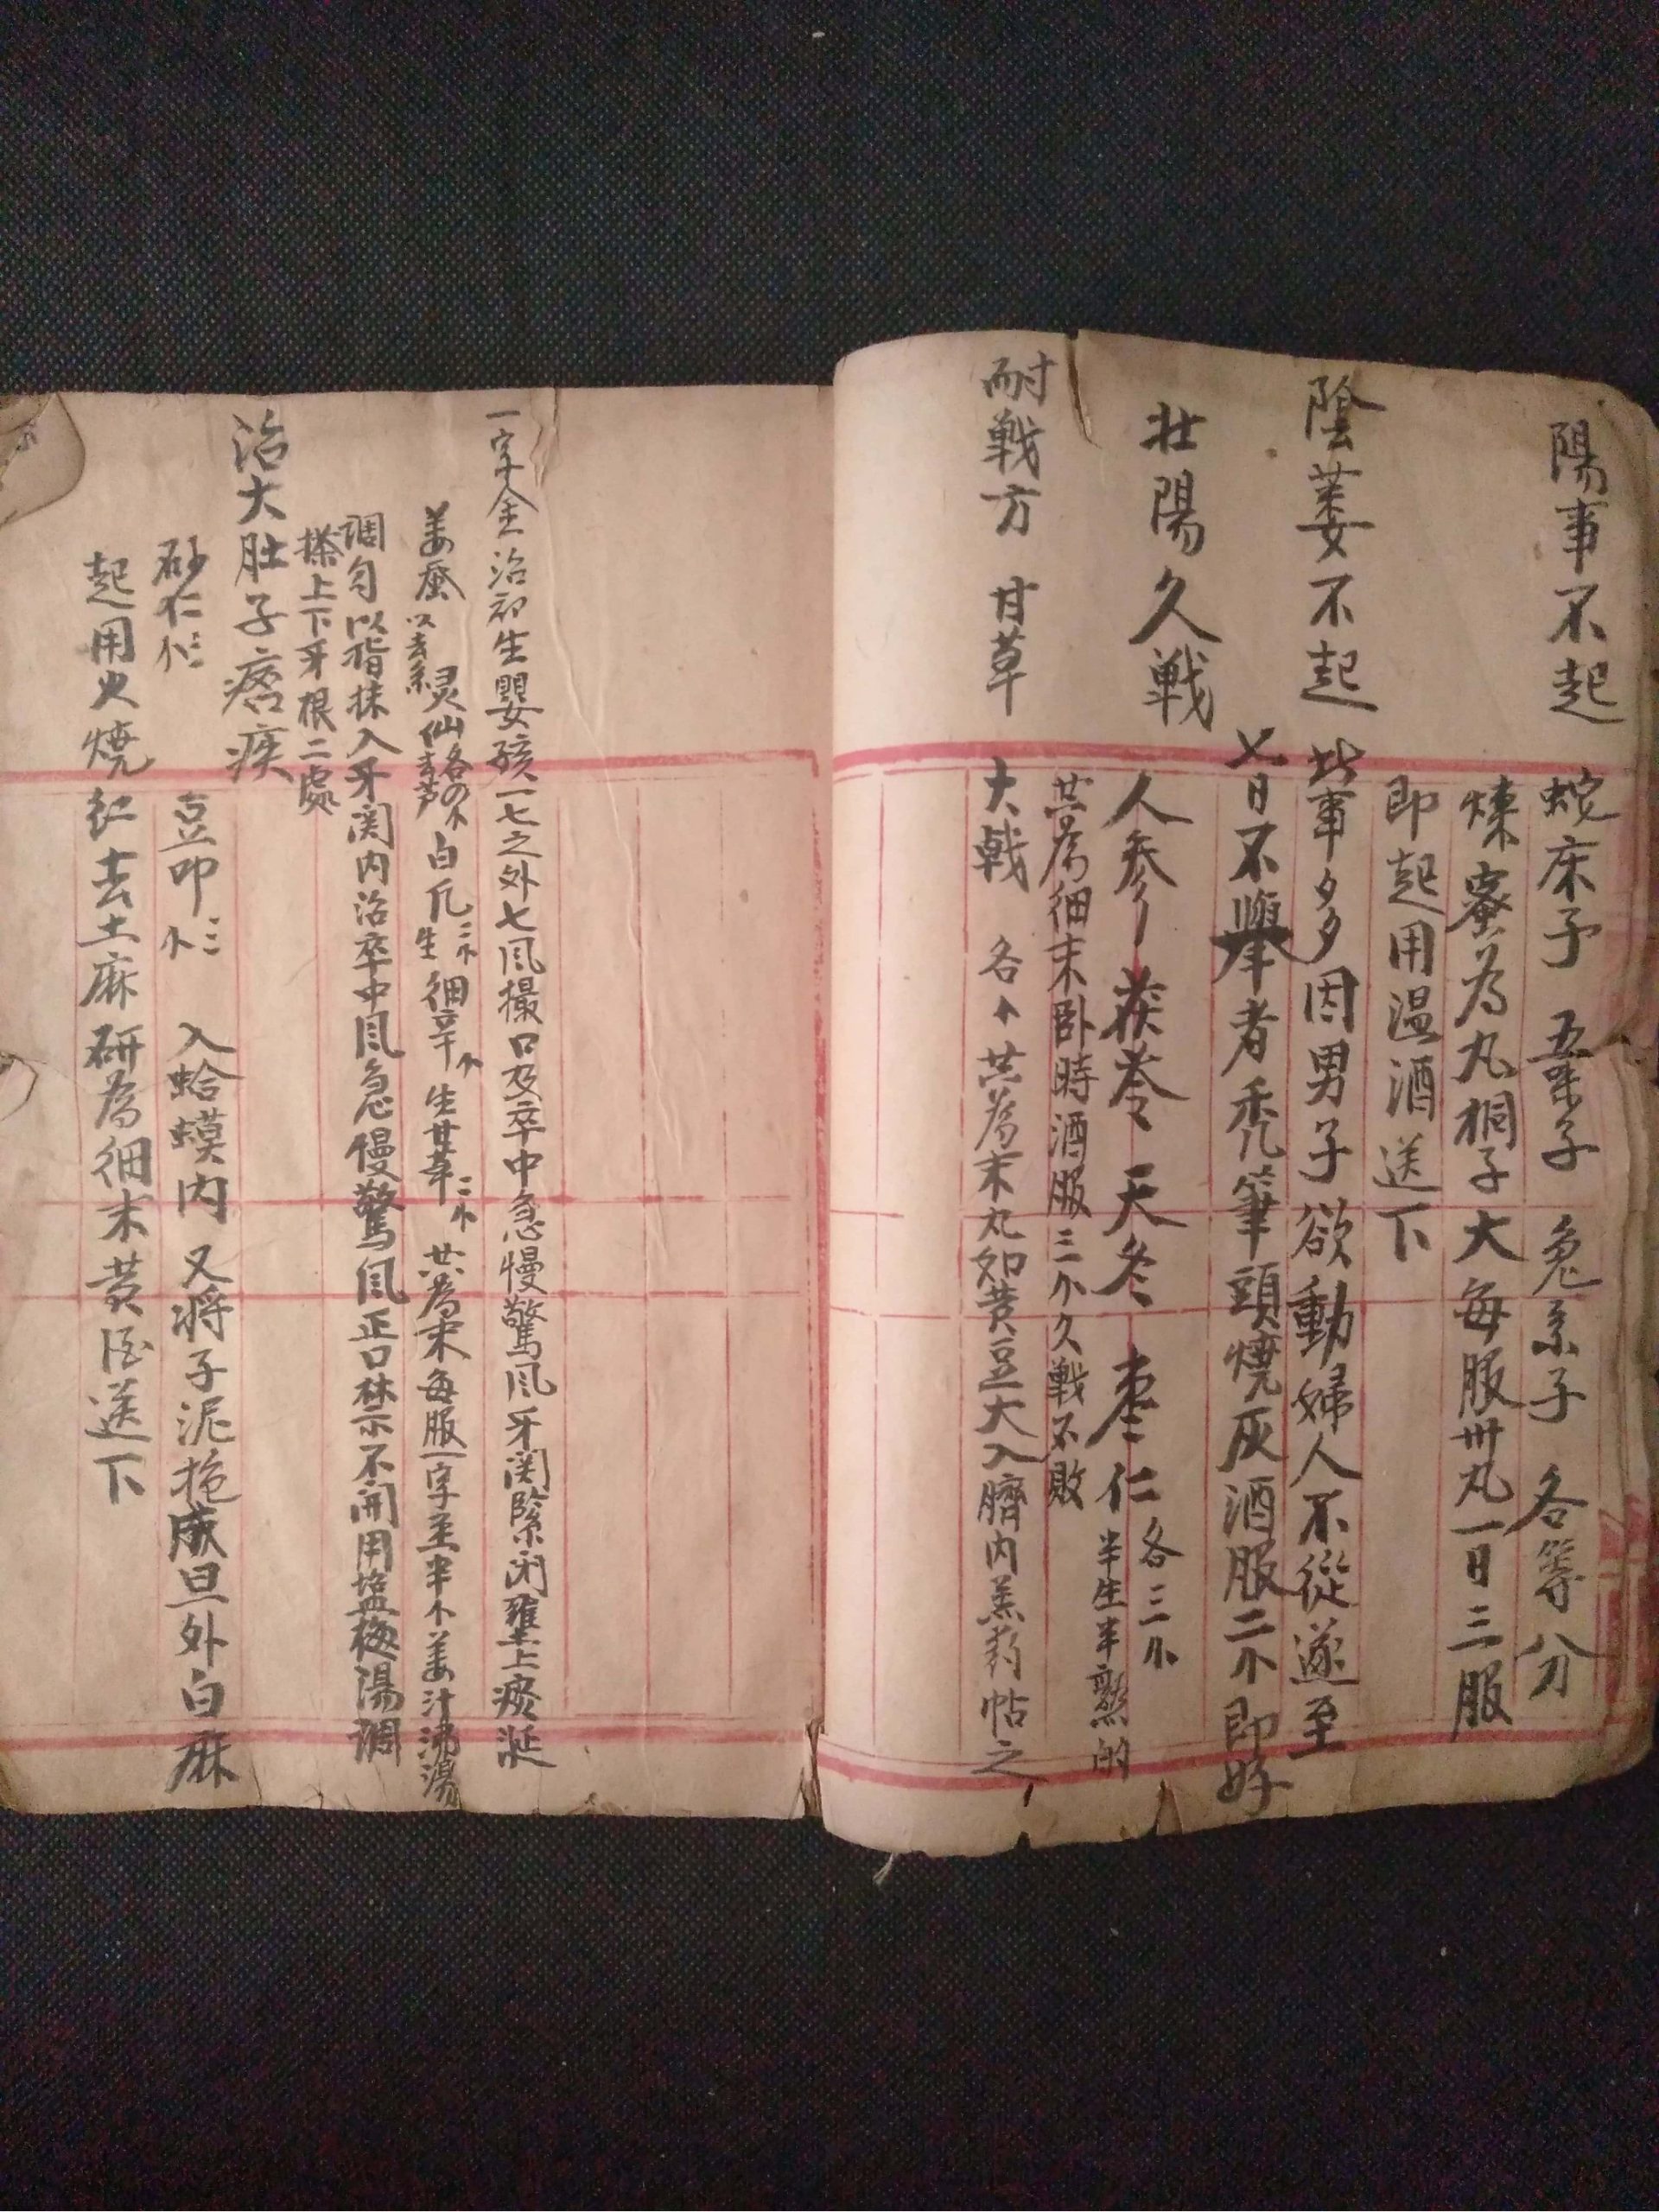 陽事不起　蛇床子　五味子　兔系子　各等分
煉蜜為丸桐子大每服卅丸一日三服
即起用温酒送下
陰萎不起　此事多因男子欲動婦人不從遂至
七日不舉者禿筆頭燒灰酒服二小即好
壯陽久戰　人參　茯苓　天冬　棗仁　各三小　半生半熟的
共為細末卧時酒服三小久戰不敗
耐戰方　甘草　大戟　各　共為末丸如黄豆大入臍内羔药帖之
一字金治初生嬰孩一七之外七风撮口及卒中急慢驚风牙関緊闭壅上痰涎
姜蚕以去系灵仙各の小去芦白凡二小生細辛小生甘草二小共為末每服一字至半小姜汁沸湯
调匀以指抹入牙関内治卒中风急慢驚风正口禁不開用塩梅湯調
搽上下牙根二處
治大肚子痞疾
砂仁小三　豆叩小三　入蛤蟆内　又將子泥抱成旦外白麻
起用火燒红去土麻研為細末黄酒送下